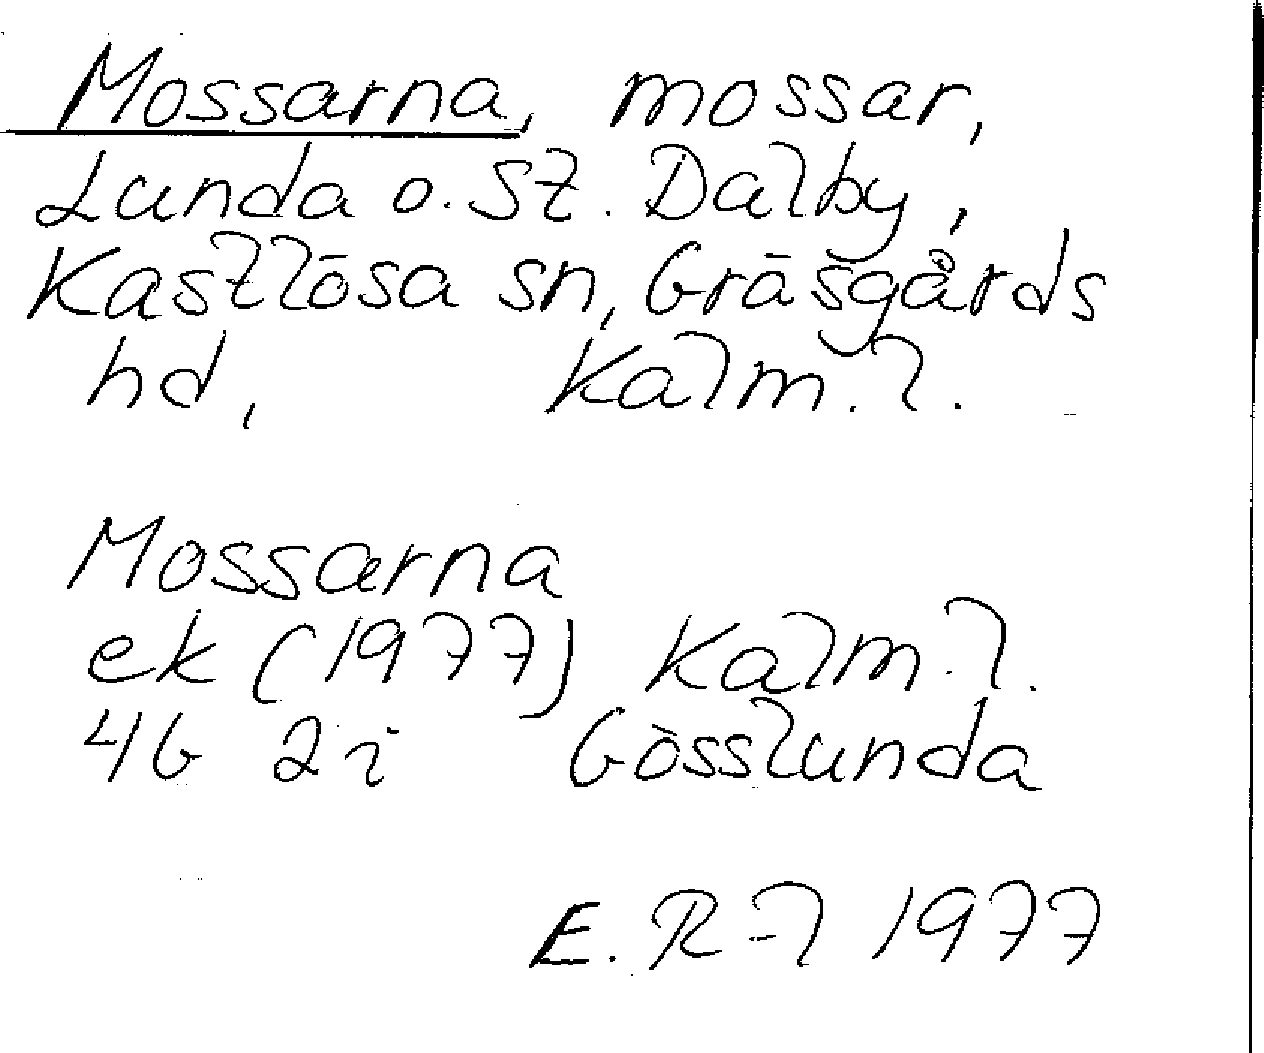 Mossarna, mossar,
Lunda o. St. Dalby,
Kastlösa sn, Gräsgårds
hd, Kalm. l.
Mossarna
ek (1977) Kalm. l.
4G 2i Gösslunda
E. R-l 1977